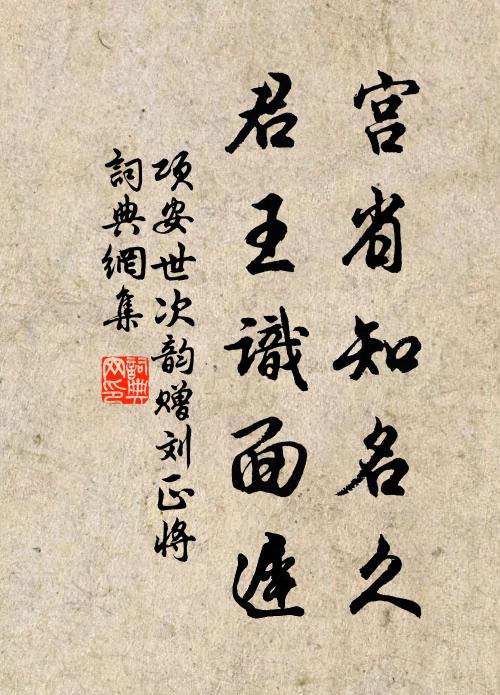 宫省知名久
君王識面遲
项安世次韵赠刘正将
詞典網集
詞典网印